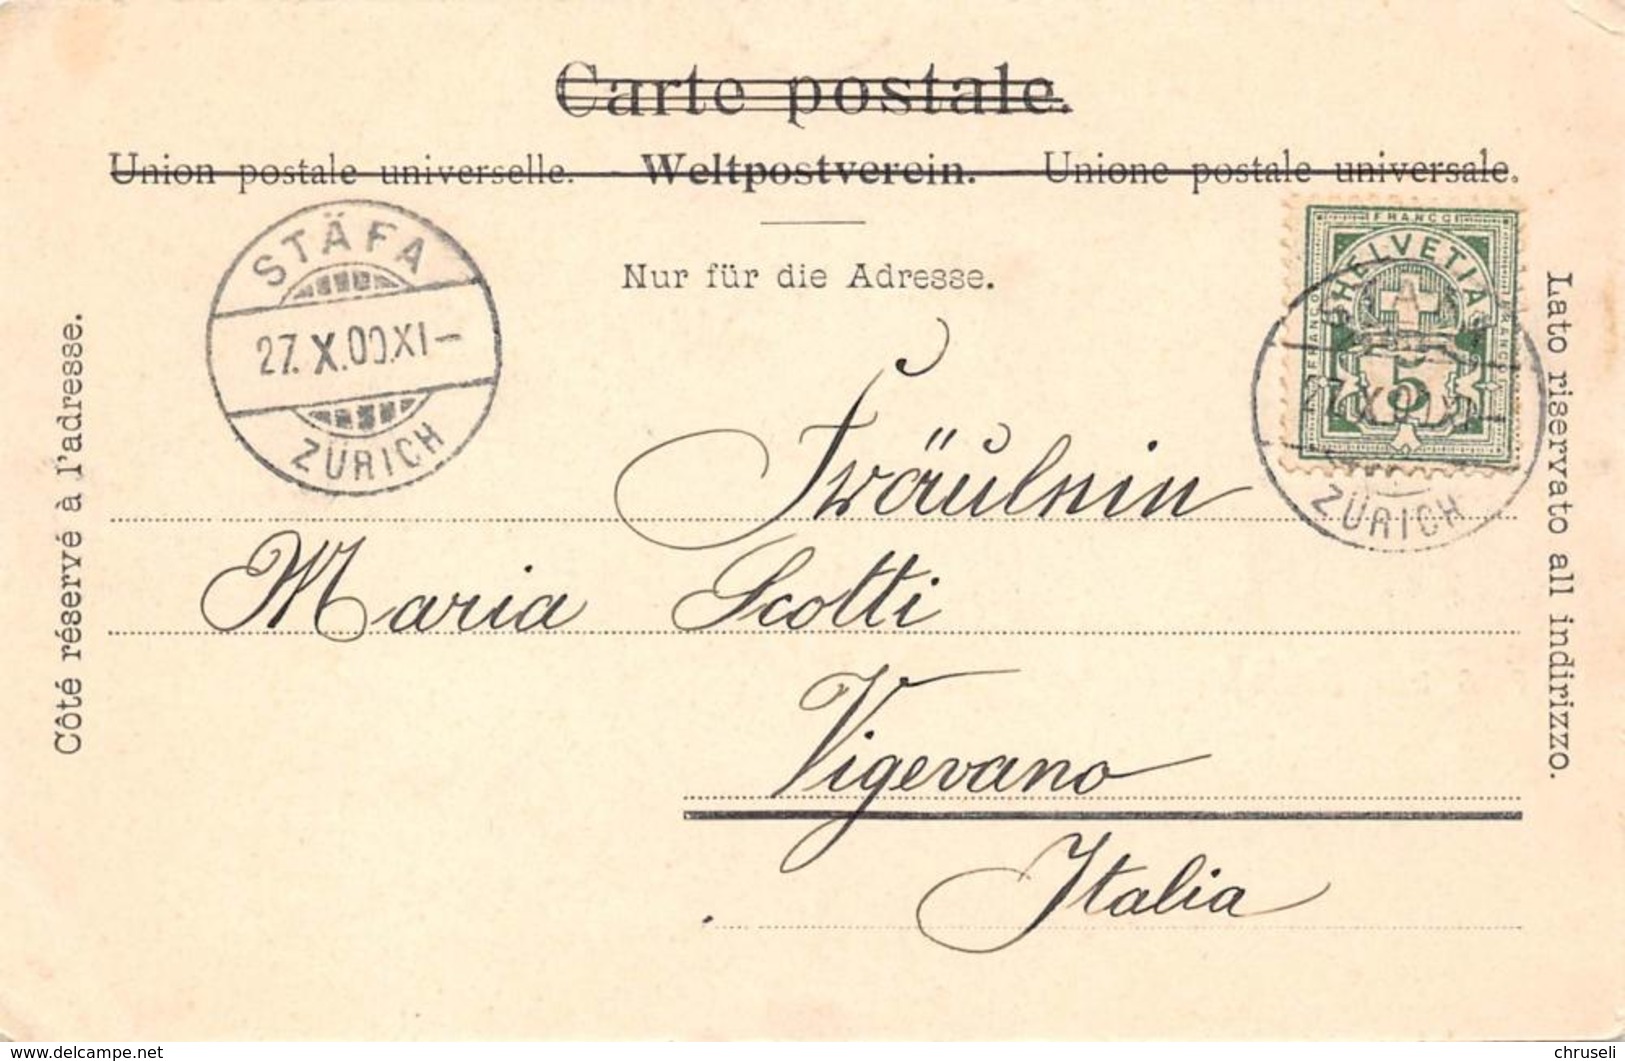 Carte postale.
Union postale universelle. Weltpostverein. Unione postale universale.
Nur für die Adresse.
Côté réservé à l'adresse.
Lato riservato all indirizzo.
STÄFA
27.X.00.XI-
ZÜRICH
FRANCO
HELVETIA
FRANCO
FRANCO
5
ZÜRICH
Fräulein
Maria Scotti
Vigevano
Italia
www.delcampe.net
chruseli